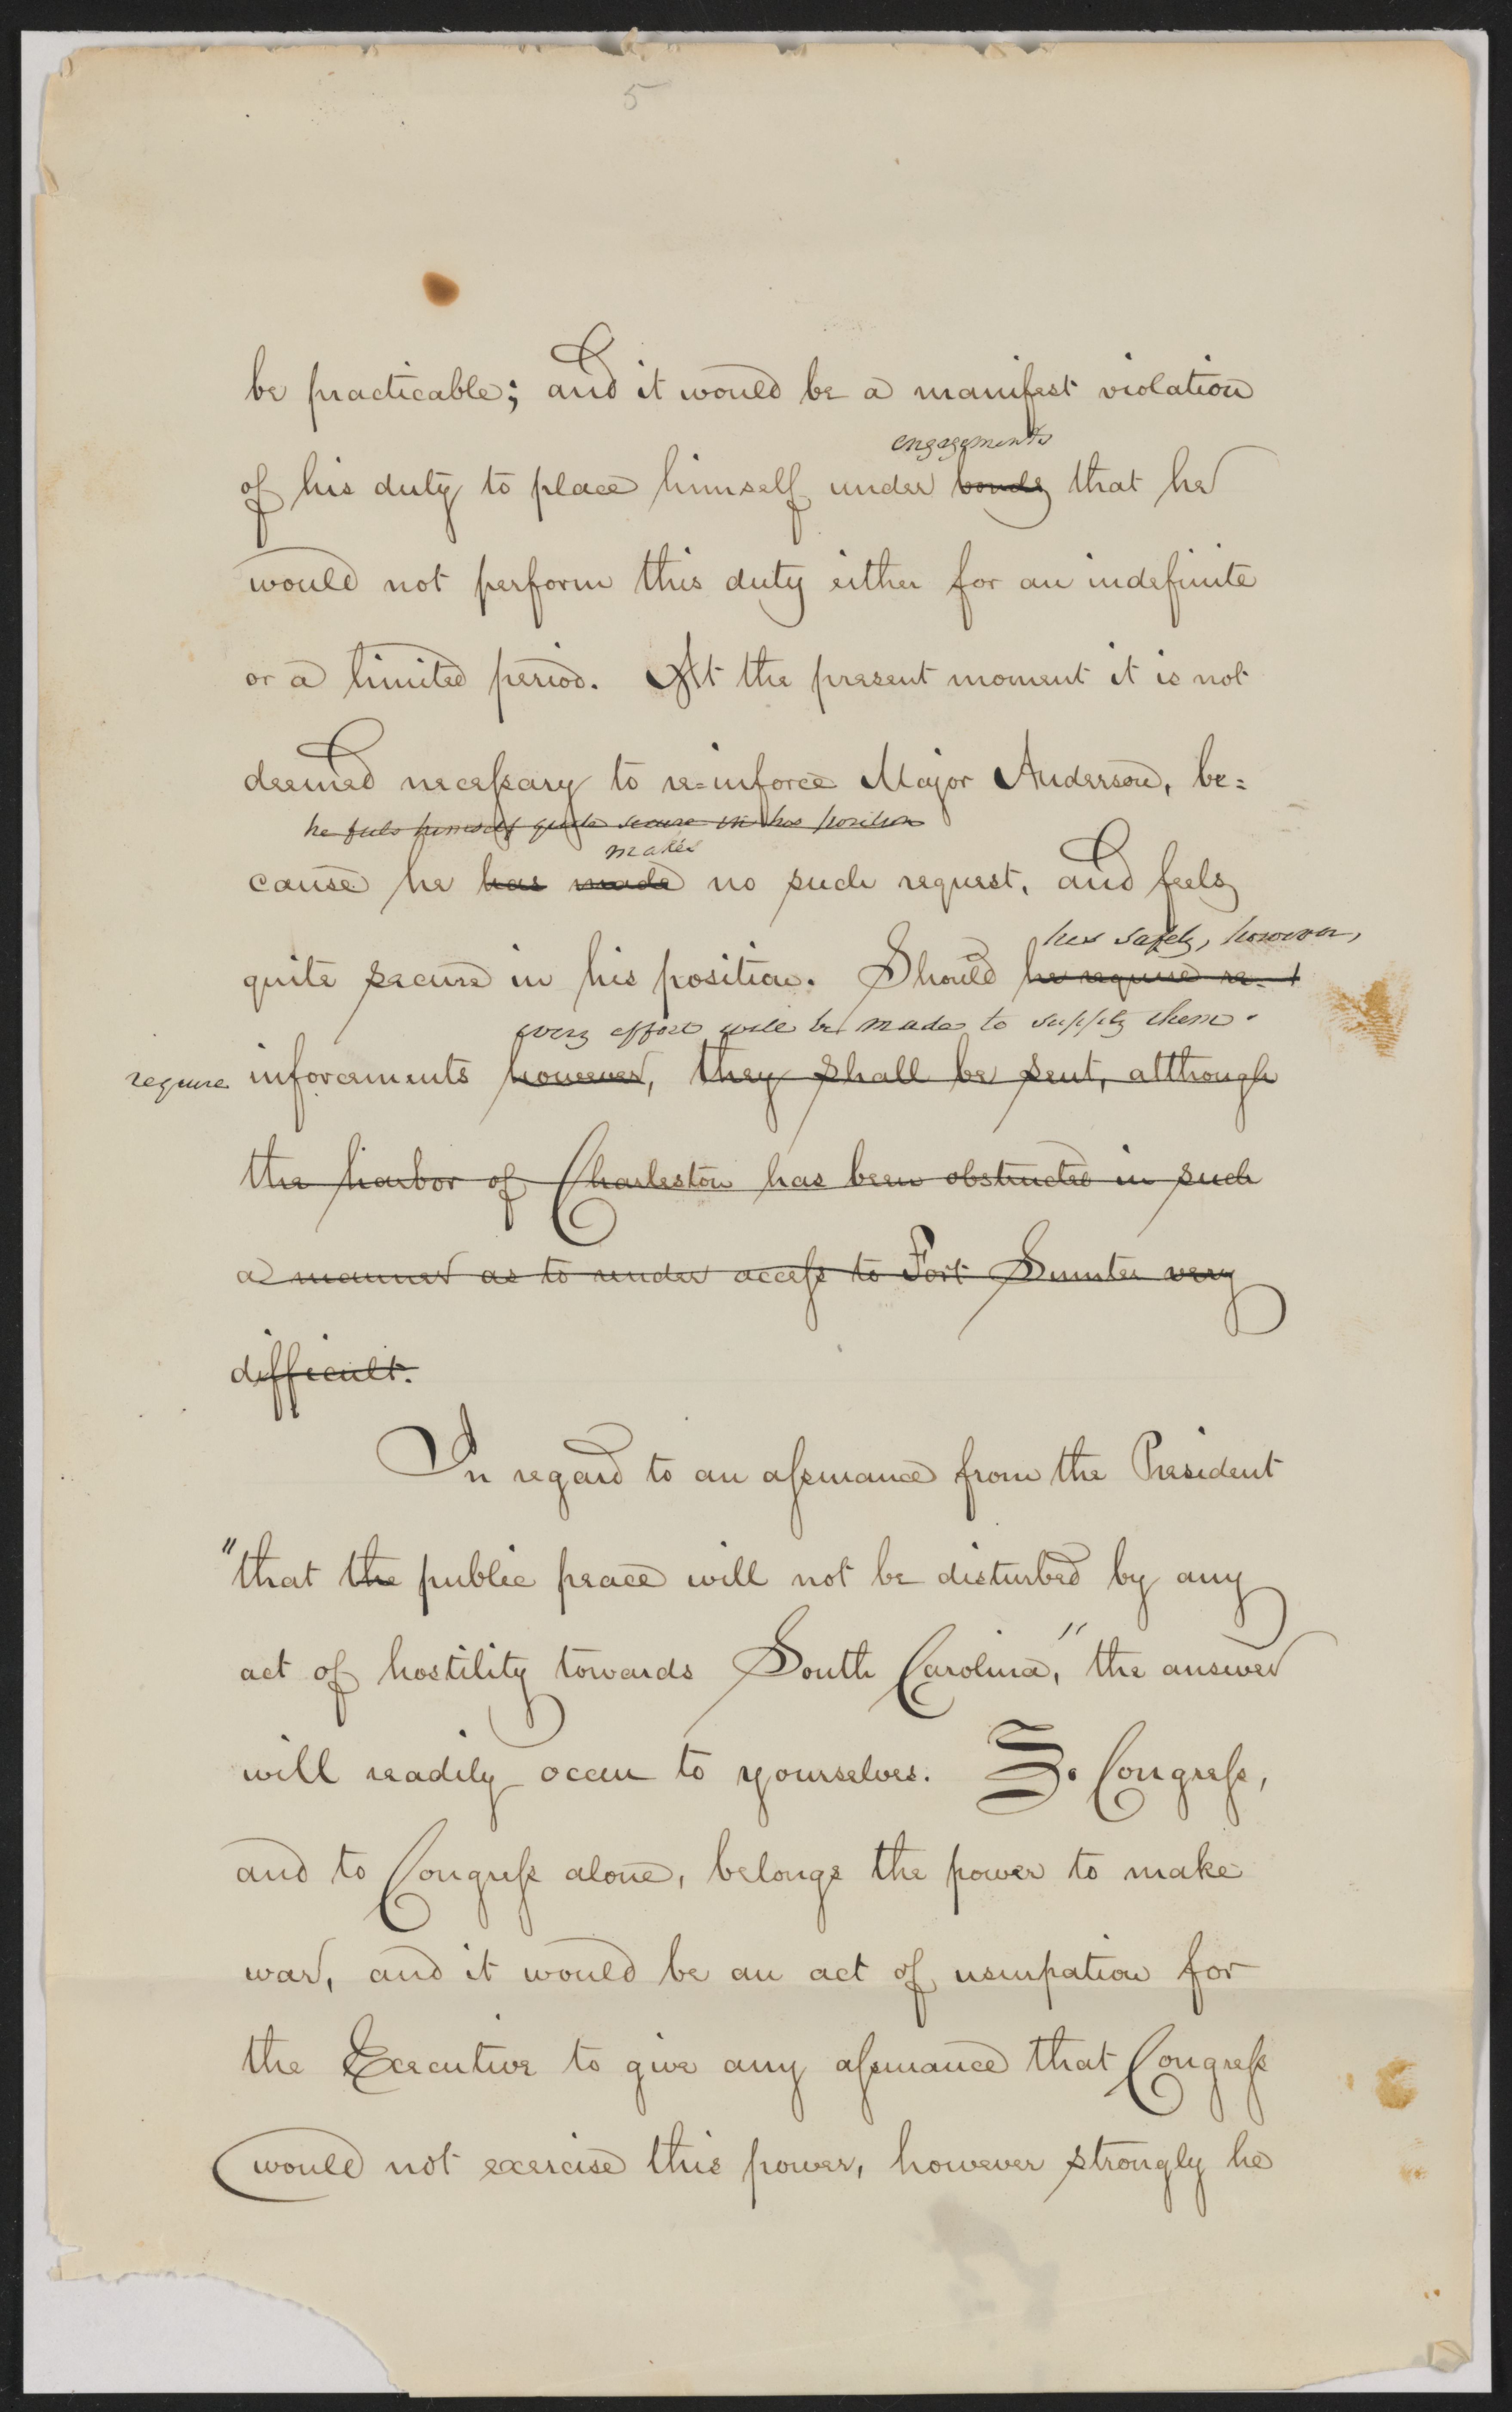 5
be practicable; and it would be a manifest violation
engagements
of his duty to place himself under bonds that he
would not perform this duty either for an indefinite
or a limited period. At the present moment it is not
deemed necessary to re=inforce Major Anderson, be=
he feels himself quite secure in his position
makes
cause he has made no such request, and feels
quite secure in his position. Should he require re-
his safety, however,
every effort will be made to supply them.
require inforcements however, they shall be sent, although
the harbor of Charleston has been obstructed in such
a manner as to render access to Fort Sumter very
difficult.
In regard to an assurance from the President
"that the public peace will not be disturbed by any
act of hostility towards South Carolina," the answer
will readily occur to yourselves. To Congress,
and to Congress alone, belongs the power to make
war, and it would be an act of usurpation for
the Executive to give any assurance that Congress
would not exercise this power, however strongly he